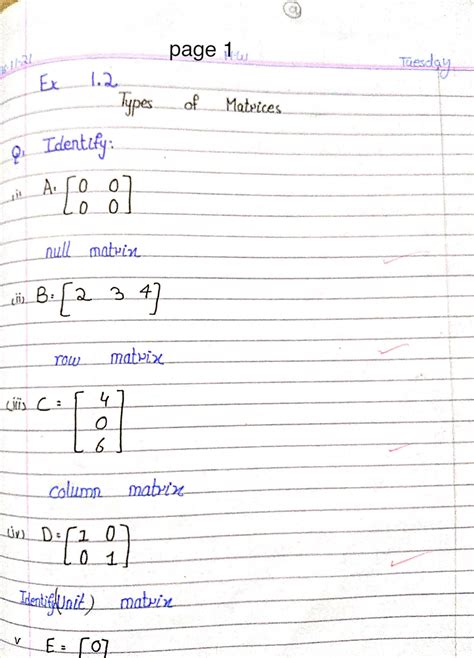 @
page 1
H.W
Tuesday
Ex 1.2
Types of Matrices
Q. Identify:
(i) A = [0 0
0 0]
null matrix
(ii) B = [2 3 4]
row matrix
(iii) C = [4
0
6]
column matrix
(iv) D = [1 0
0 1]
Identify(Unit) matrix
v E = [0]